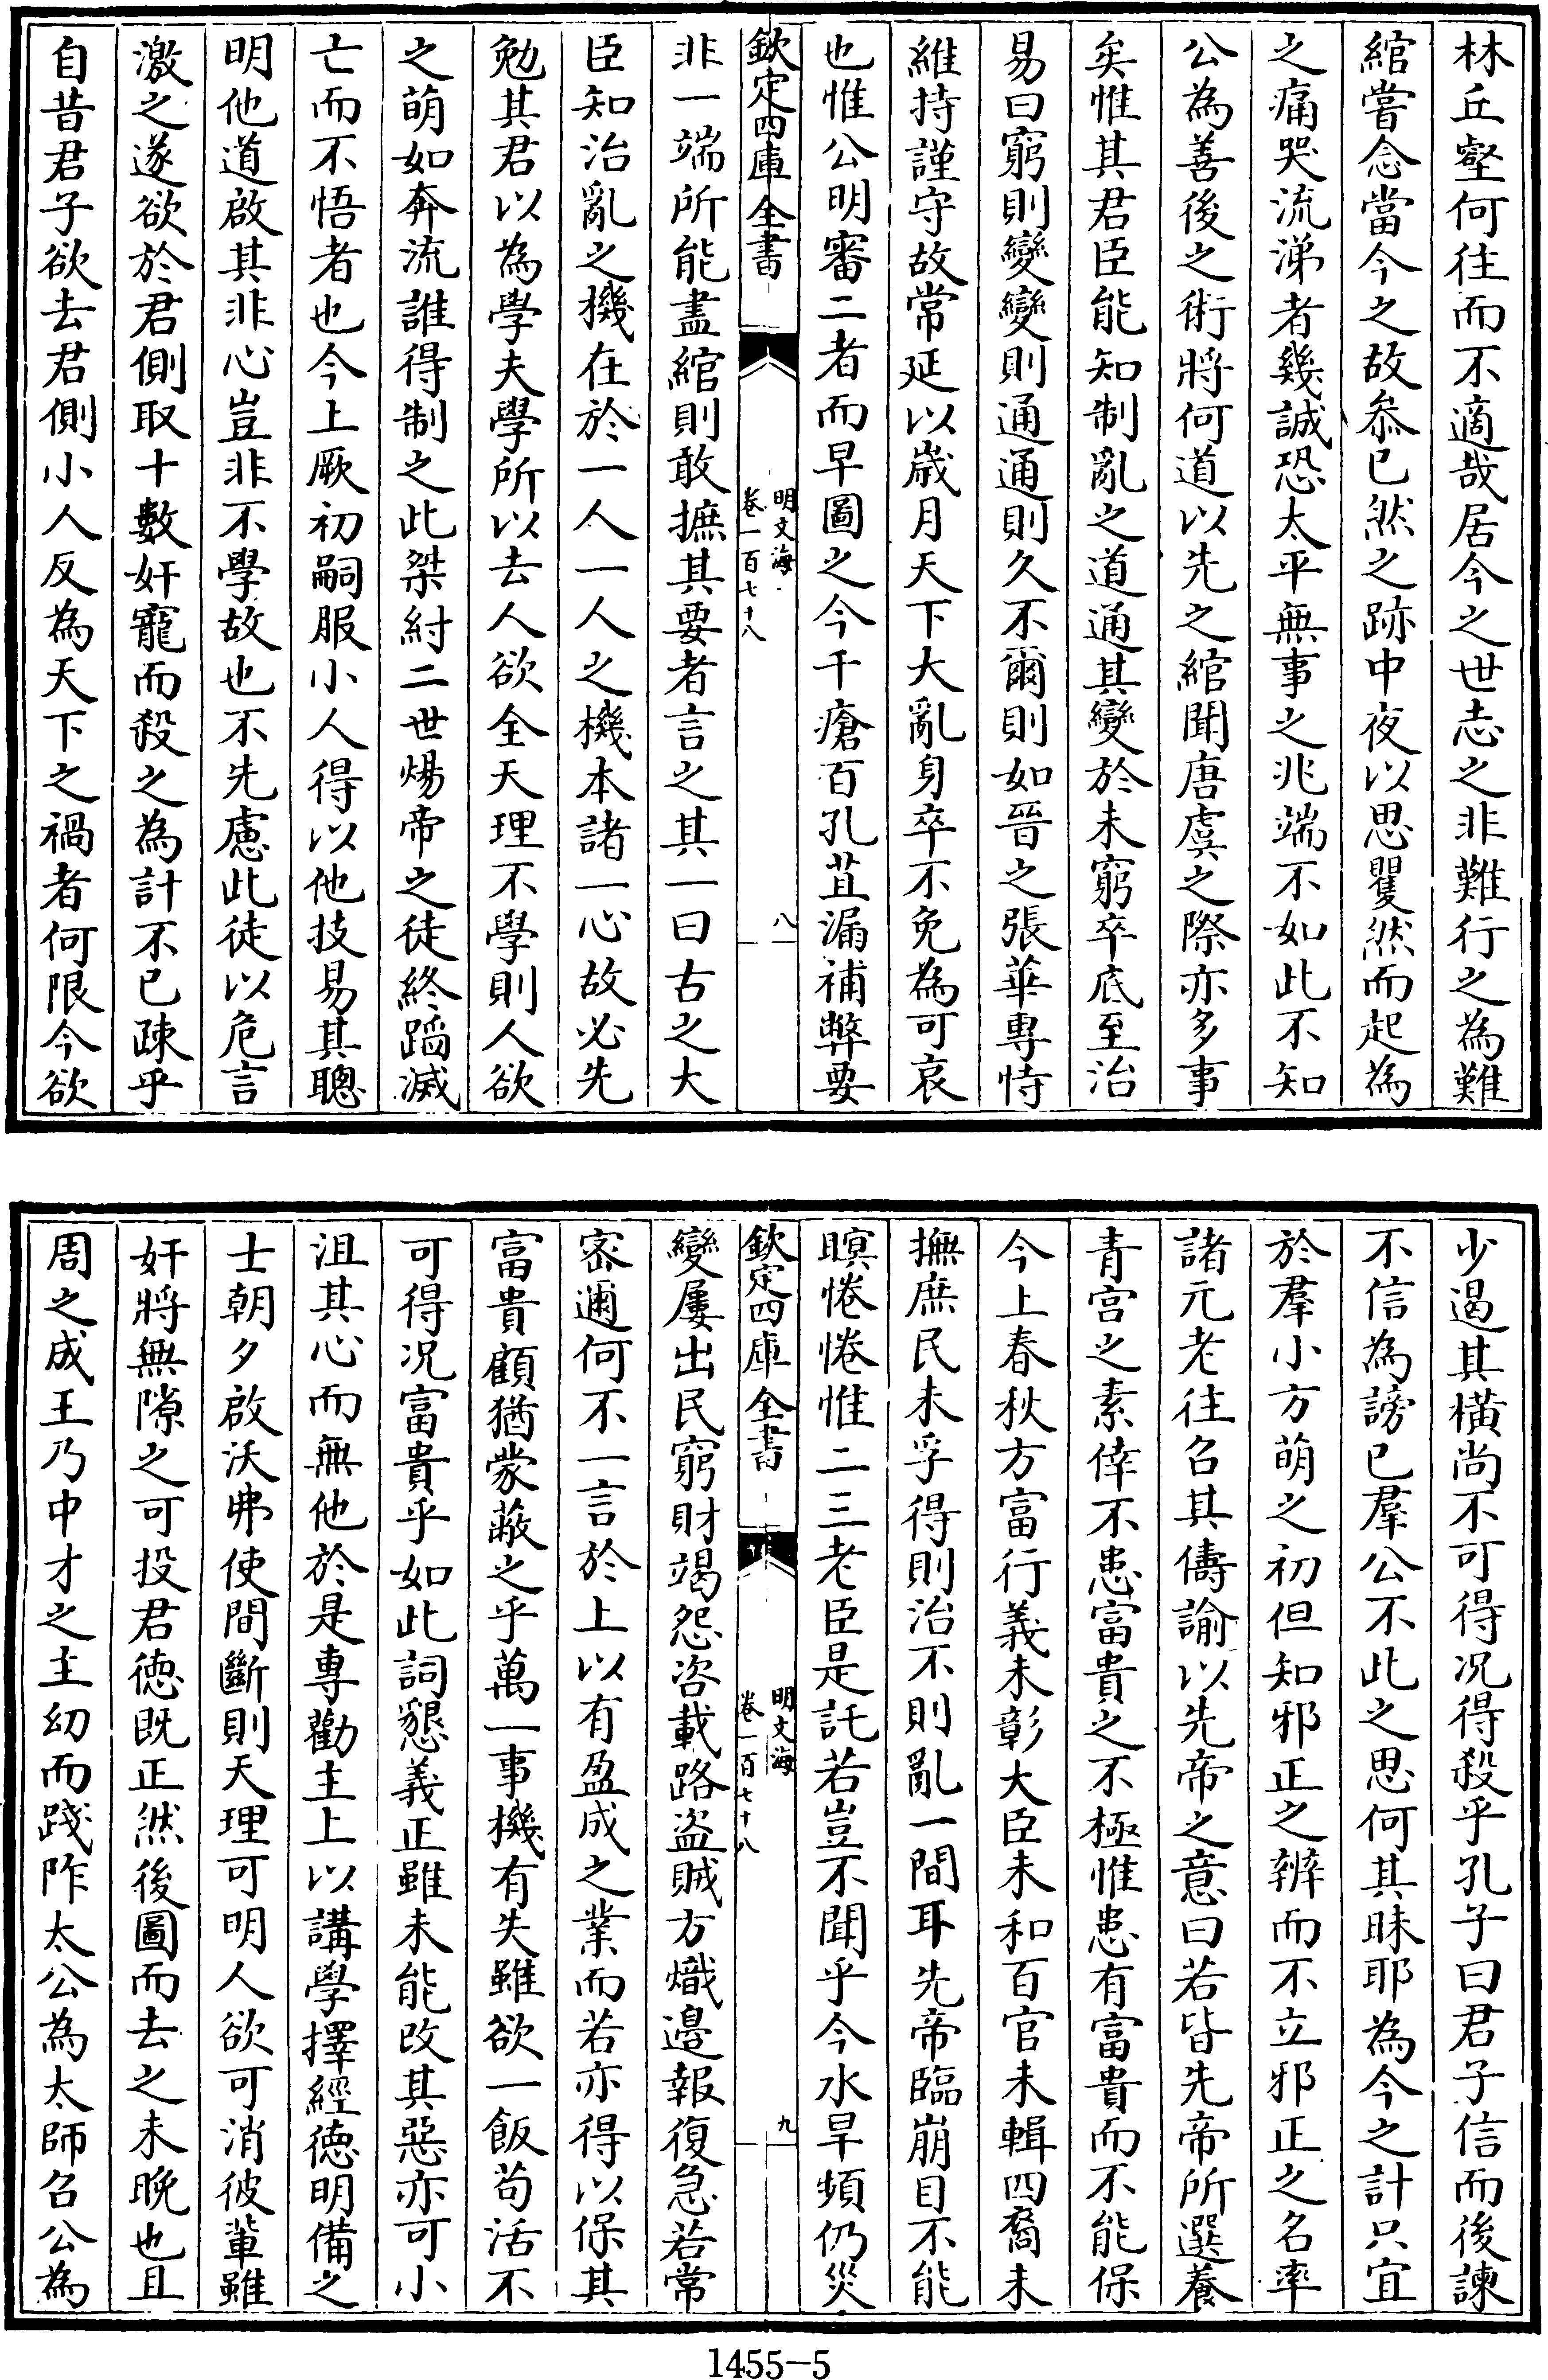 林丘壑何往而不適哉居今之世志之非難行之為難
綰嘗念當今之故叅已然之跡中夜以思瞿然而起為
之痛哭流涕者幾誠恐太平無事之兆端不如此不知
公為善後之術將何道以先之綰聞唐虞之際亦多事
矣惟其君臣能知制亂之道通其變於未窮卒底至治
易曰窮則變變則通通則久不爾則如晉之張華專恃
維持謹守故常延以歲月天下大亂身卒不免為可哀
也惟公明審二者而早圖之今千瘡百孔苴漏補弊要
欽定四庫全書
明文海
卷一百七十八
八
非一端所能盡綰則敢摭其要者言之其一曰古之大
臣知治亂之機在於一人一人之機本諸一心故必先
勉其君以為學夫學所以去人欲全天理不學則人欲
之萌如奔流誰得制之此桀紂二世煬帝之徒終蹈滅
亡而不悟者也今上厥初嗣服小人得以他技易其聰
明他道啟其非心豈非不學故也不先慮此徒以危言
激之遂欲於君側取十數奸寵而殺之為計不已疎乎
自昔君子欲去君側小人反為天下之禍者何限今欲
少遏其橫尚不可得况得殺乎孔子曰君子信而後諫
不信為謗已羣公不此之思何其昧耶為今之計只宜
於羣小方萌之初但知邪正之辨而不立邪正之名率
諸元老往召其儔諭以先帝之意曰若皆先帝所選養
青宫之素倖不患富貴之不極惟患有富貴而不能保
今上春秋方富行義未彰大臣未和百官未輯四裔未
撫庶民未孚得則治不則亂一間耳先帝臨崩目不能
瞑惓惓惟二三老臣是託若豈不聞乎今水旱頻仍災
欽定四庫全書
明文海
卷一百七十八
九
變屢出民窮財竭怨咨載路盜賊方熾邉報復急若常
宻邇何不一言於上以有盈成之業而若亦得以保其
富貴顧猶蒙蔽之乎萬一事機有失雖欲一飯茍活不
可得况富貴乎如此詞懇義正雖未能改其惡亦可小
沮其心而無他於是專勸主上以講學擇經徳明備之
士朝夕啟沃弗使間斷則天理可明人欲可消彼輩雖
奸將無隙之可投君徳既正然後圖而去之未晚也且
周之成王乃中才之主幼而踐阼太公為太師召公為
1455-5